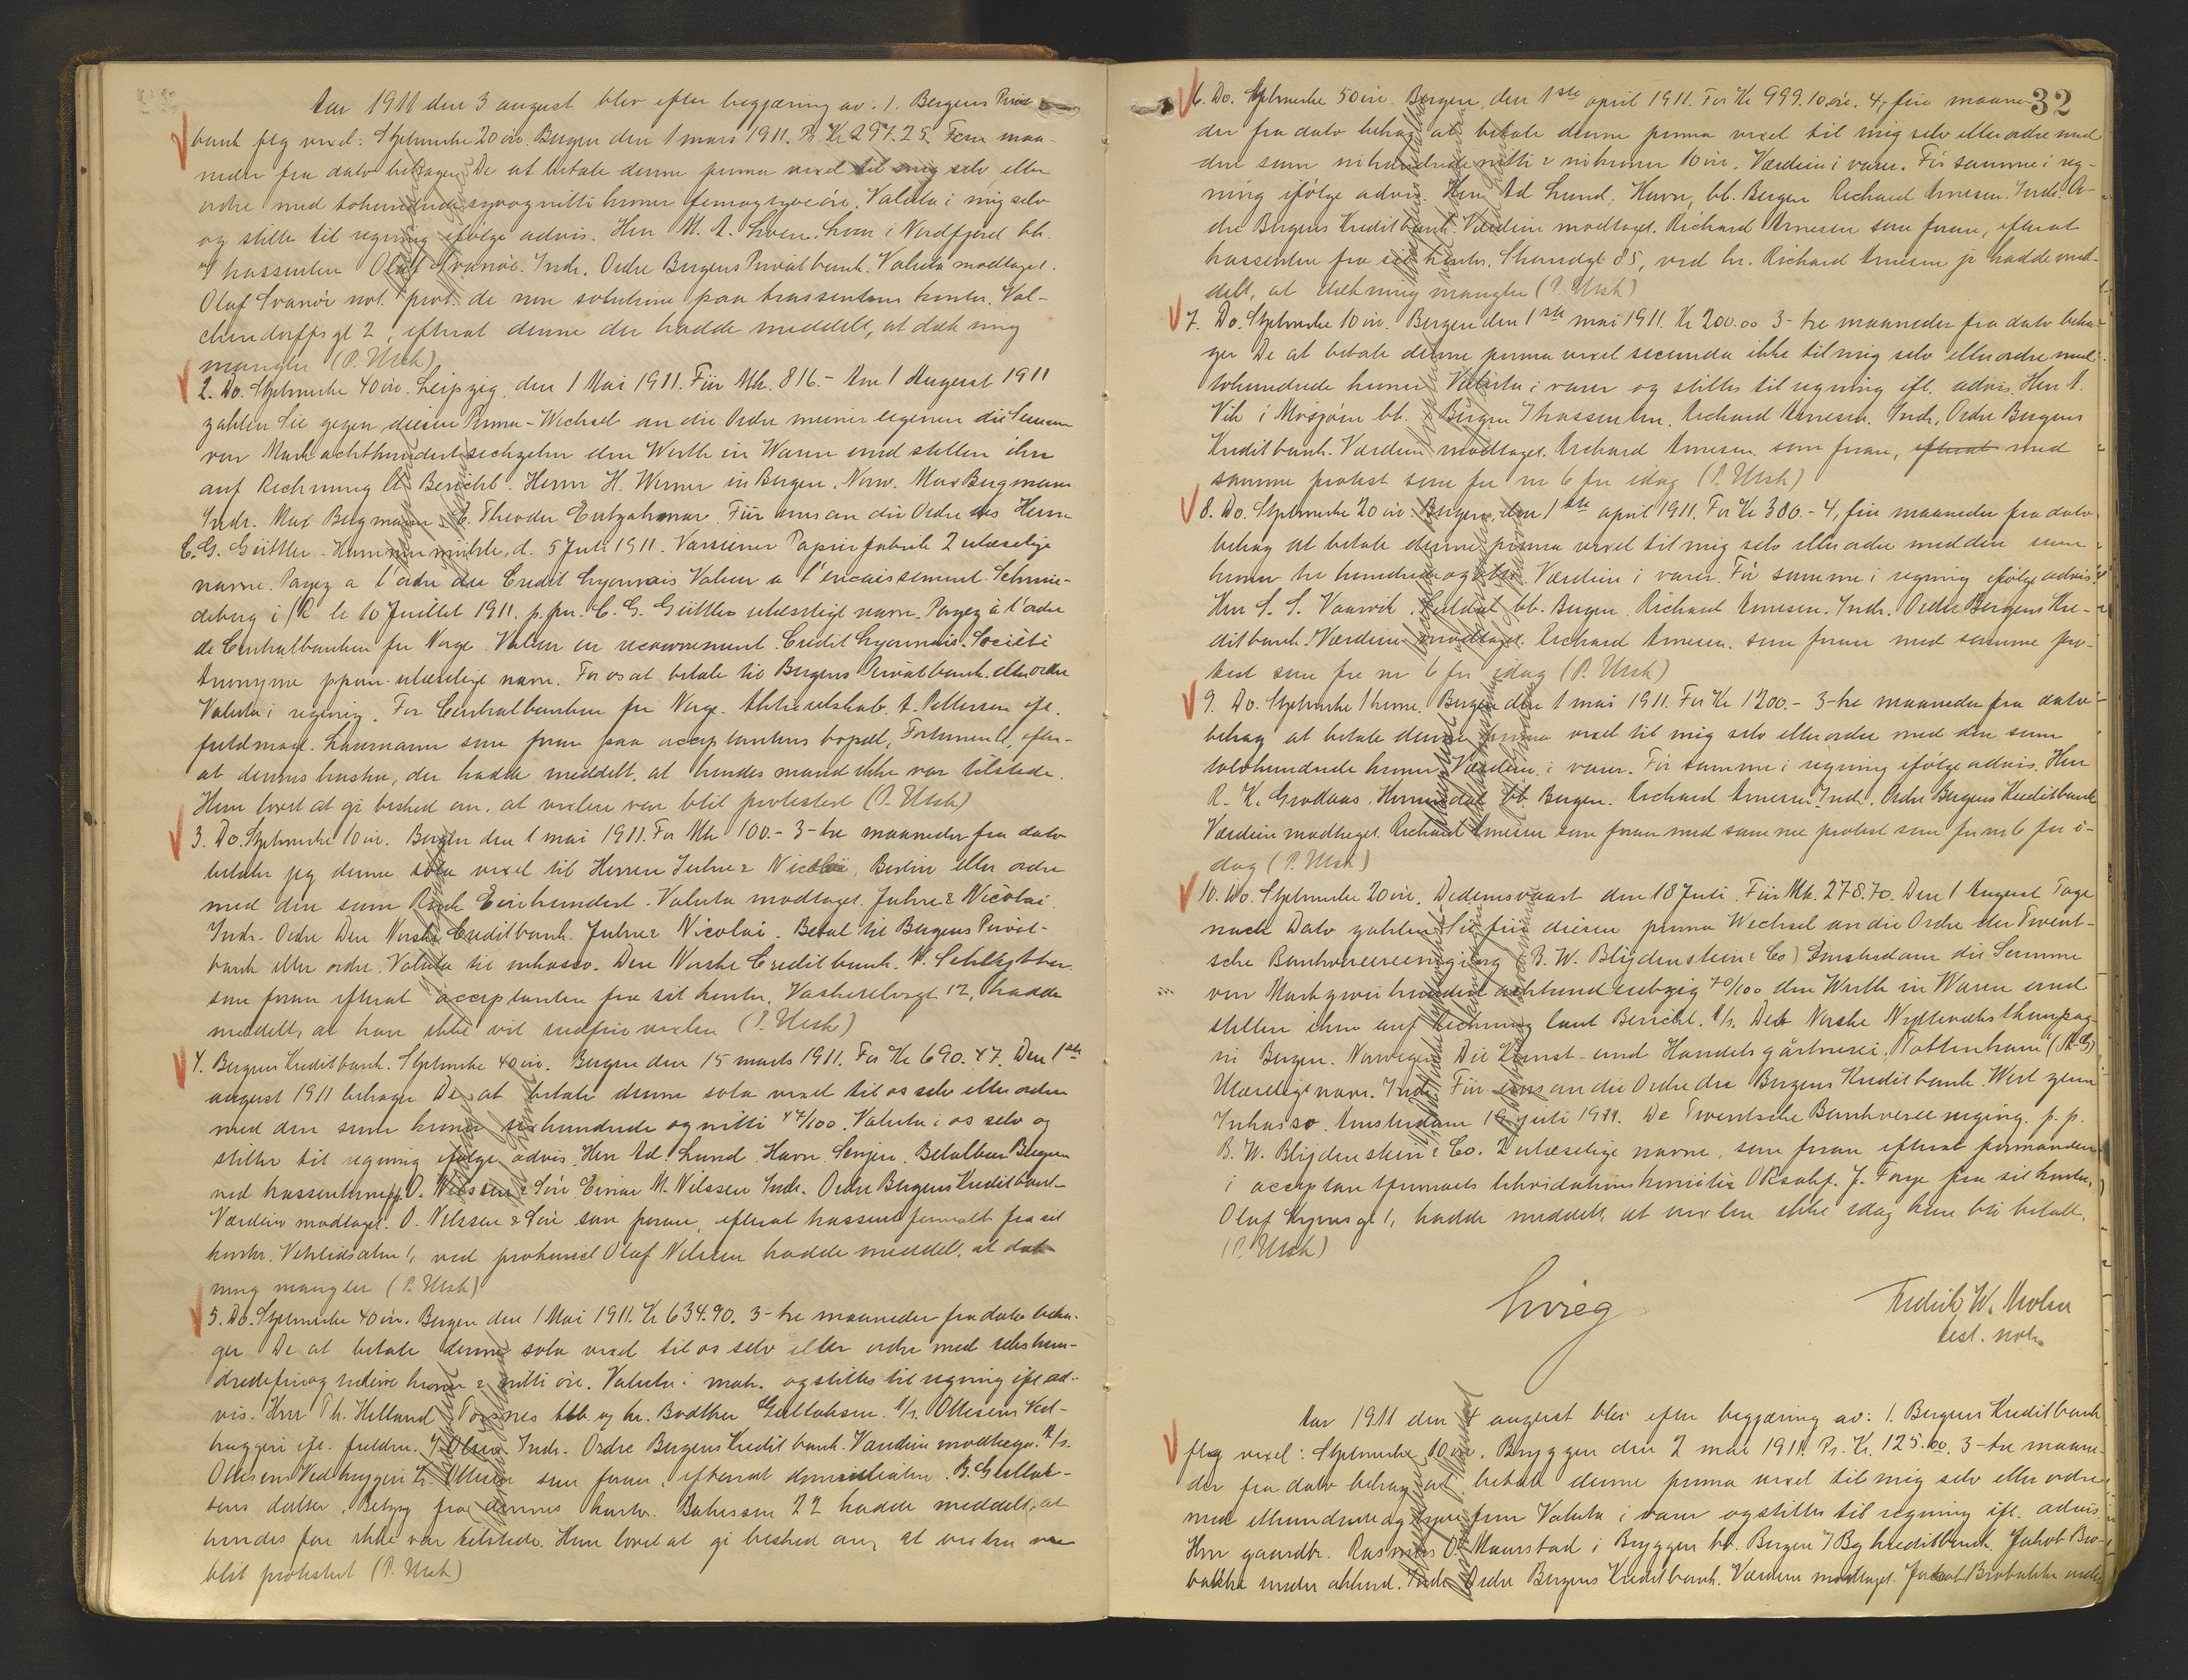 Aar 1911 den 3 august blev efter begjæring av: 1. Bergens Privat
bank flg vexel: Stplmerke 20 øre. Bergen den 1 mars 1911. Pr Kr 297.25. Fem maa-
neder fra dato behager De at betale denne prima vexel til mig selv eller
ordre med tohundrede syvognitti kroner femogtyve øre. Valuta i mig selv
og stilles til regning ifølge advis. Herr M. A. Loen. Loen i Nordfjord bb.
trassenten Olaf Svanøe. Indr. Ordre Bergens Privatbank. Valuta modtaget.
Olaf Svanøe not. prot. de non solutione paa trassentens kontor. Val-
chendorffs gt 2, efterat denne der hadde meddelt, at dækning
mangler (P. Utsk)
2. Do. Stplmerke 40 øre. Leipzig, den 1 Mai 1911. Für Mk. 816.- Am 1 August 1911
zahlen Sie gegen diesen Prima-Wechsel an die Ordre meiner eigenen die Summe
von Mark achthundertsechzehn den Werth in Waren und stellen ihn
auf Rechnung lt Bericht. Herrn H. Werner in Bergen. Norw. Max Bergmann
Indr. Max Bergmann. Theodor Für uns an die Ordre des Herrn
C. G. Güttler. Hammermühle, d. 5 Juli 1911. Varziner Papierfabrik 2 ulæselige
navne. Payez a l'ordre du Credit Lyonnais Valeur a l'encaissement. Schmie-
deberg i/R le 10 Juillet 1911. p. pr. C. G. Güttler ulæseligt navn. Payez à l'ordre
de Centralbanken for Norge. Valeur en recouvrement. Credit Lyonnais. Société
Anonyme ppon. ulæselige navn. For os at betale til Bergens Privatbank eller ordre
Valuta i regning. For Centralbanken for Norge. Aktieselskab. A. Pettersen ifl.
fuldmagt. Laumann som foran paa acceptantens bopæl, Fortunen, efter-
at dennes hustru, der hadde meddelt, at hendes mand ikke var tilstede.
Hun lovet at gi besked om, at vexelen var blit protestert (P. Utsk)
3. Do. Stplmerke 10 øre. Bergen den 1 mai 1911. For Mk 100.- 3-tre maaneder fra dato
betaler jeg denne sola vexel til Herren Juhre & Nicolai, Berlin eller ordre
med den sum Rmk Einhundert. Valuta modtaget. Juhre & Nicolai.
Indr. Ordre Den Norske Creditbank. Juhre & Nicolai. Betal til Bergens Privat-
bank eller ordre. Valuta til inkasso. Den Norske Creditbank.
som foran efterat acceptanten fra sit kontor, Vaskerelvsgt 12, hadde
meddelt, at han ikke vil indfri vexlen (P. Utsk)
4. Bergens Kreditbank. Stplmerke 40 øre. Bergen den 15 marts 1911. For Kr 690.47. Den 1ste
august 1911 behager De at betale denne sola vexel til os selv eller ordre
med den sum kroner sekshundrede ognitti 47/100. Valuta i os selv og
stilles til regning ifølge advis. Herr Ad. Lund. Havn. Senjen. Betalbar Bergen
ved trassenterne. O. Nilssen & Søn Einar M. Nilssen Indr. Ordre Bergens Kreditbank
Værdien modtaget. O. Nilssen & Søn som foran, efterat trassentfirmaet fra sit
kontor. Vetrlidsalm 1, ved prokurist Olaf Nilssen hadde meddelt, at dæk-
ning mangler (P. Utsk)
5. Do. Stplmerke 40 øre. Bergen den 1 Mai 1911. Kr 634.90. 3-tre maaneder fra dato beha-
ger De at betale denne sola vexel til os selv eller ordre med sekshun-
dredefireogtredive kroner & nitti øre. Valuta i mot. og stilles til regning ifl ad-
vis. Herr Th. Helland. bb og hr. Bødtker Gullaksen. A/s. Ottesens Ved-
huggeri ifl. fuldm. Indr. Ordre Bergens Kreditbank. Værdien modtaget. A/s.
Ottesens Vedhuggeri som foran, efterat domiciliaten. B. Gullak-
sens datter, Betzy fra dennes kontor. 22 hadde meddelt, at
hendes far ikke var tilstede. Hun lovet at gi besked om, at vexlen var
blit protestert (P. Utsk)
32
6. Do. Stplmerke 50 øre. Bergen, den 1ste april 1911. For Kr 999.10 øre. 4, fire maane-
der fra dato behag at betale denne prima vexel til mig selv eller ordre med
den sum nihundrede nitti & ni kroner 10 øre. Værdien i varer. Før samme i reg-
ning ifølge advis. Herr Ad Lund. Havn, bb. Bergen Richard Arnesen. Indr. Or-
dre Bergens Kreditbank. Værdien modtaget. Richard Arnesen som foran, efterat
trassenten fra sit kontor. Strandgt 85, ved hr. Richard Arnesen jr hadde med-
delt, at dækning mangler (P. Utsk)
7. Do. Stplmerke 10 øre. Bergen den 1ste mai 1911. Kr 200.00 3-tre maaneder fra dato beha-
ger De at betale denne prima vexel secunda ikke til mig selv eller ordre med
tohundrede kroner Valuta i varer og stilles til regning ifl. advis. Herr A.
Vik i Mosjøen bb. Bergen trassenten. Richard Arnesen. Indr. Ordre Bergens
Kreditbank. Værdien modtaget. Richard Arnesen som foran, efterat med
samme protest som for nr 6 for idag (P. Utsk)
8. Do. Stplmerke 20 øre. Bergen, den 1ste april 1911. For Kr 380.- 4, fire maaneder fra dato
behag at betale denne prima vexel til mig selv eller ordre med den sum
kroner tre hundrede og otti. Værdien i varer. Før samme i regning ifølge advis.
Herr S. S. Vaarvik. bb. Bergen. Richard Arnesen. Indr. Ordre Bergens Kre-
ditbank. Værdien modtaget. Richard Arnesen. som foran med samme pro-
test som for nr 6 for idag (P. Utsk)
9. Do. Stplmerke 1 krone. Bergen den 1 mai 1911. For Kr 1200.- 3-tre maaneder fra dato
behag at betale denne prima vexel til mig selv eller ordre med den sum
tolvhundrede kroner Værdien i varer. Før samme i regning ifølge advis. Herr
R. K. Grodaas. Hornindal bb. Bergen. Richard Arnesen Indr. Ordre Bergens Kreditbank
Værdien modtaget. Richard Arnesen som foran med samme protest som for nr 6 for i-
dag (P. Utsk)
10. Do. Stplmerke 20 øre. Dedemsvaart den 18 Juli. Für Mk. 278.70. Den 1 August Tage
nach Dato zahlen Sie für diesen prima Wechsel an die Ordre der Twent-
sche Bankvereeniging (B. W. Blijdenstein & Co) Amsterdam die Summe
von Mark zweihundert achtundsiebzig 70/100 den Werth in Waren und
stellen ihn auf Rechnung laut Bericht. A/s. Det Norske
in Bergen. Norwegen. Die Kunst- und Handelsgärtnerei, Tottenham (A-G)
Ulæseligt navn. Indr. Für uns an die Ordre der Bergens Kreditbank. Wert zum
Inkasso. Amsterdam 19 juli 1911. De Twentsche Bankvereeniging. p. p.
B. W. Blijdenstein & Co. 2 ulæselige navne, som foran efterat formanden
i acceptantfirmaets likvidationskomite ORsakf. J. Forge fra sit kontor,
Olaf Kyrres gt 1, hadde meddelt, at vexlen ikke idag kan bli betalt.
(P. Utsk)
Fredrik W.
test. not.
Aar 1911 den 4 august blev efter begjæring av: 1. Bergens Kreditbank
flg vexel: Stplmerke 10 øre. Bryggen den 2 mai 1911. Pr. Kr. 125.00. 3-tre maane-
der fra dato behag at betale denne prima vexel til mig selv eller ordre
med ethundrede og tyve fem Valuta i varer og stilles til regning ifl. advis
Herr gaardbr. Rasmus O. Maurstad i Bryggen bb. Bergen Bg kreditbank. Jakob Bro-
bakke under akkord. Indr Ordre Bergens Kreditbank. Værdien modtaget. Jakob Brobakke under